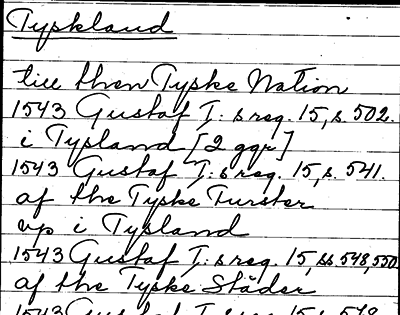 Tyskland
till then Tyske Nation
1543 Gustaf I:s reg. 15, s. 502.
i Tysland [2 ggr]
1543 Gustaf I:s reg. 15, s. 541.
af the Tyske Furster
vp i Tysland
1543 Gustaf I:s reg. 15, ss. 548, 550
af the Tyske Städer
1543 Gustaf I:s reg. 15, s. 549